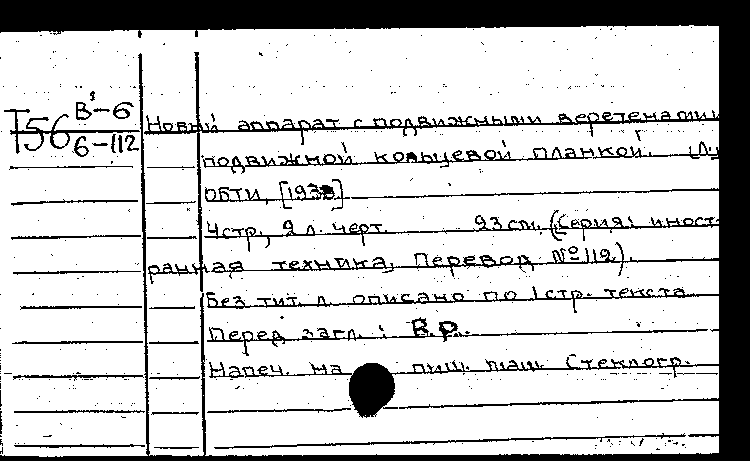 В³–6
Т56 6–112
Новый аппарат с подвижными веретенами и
подвижной кольцевой планкой.
ОБТИ,
4 стр., 2 л. черт. 23 см. (Серия: иност-
ранная техника, Перевод № 112).
Без тит. л. описано по 1 стр. текста
Перед загл.: В.Р.
Напеч. на пиш. маш. Стеклогр.